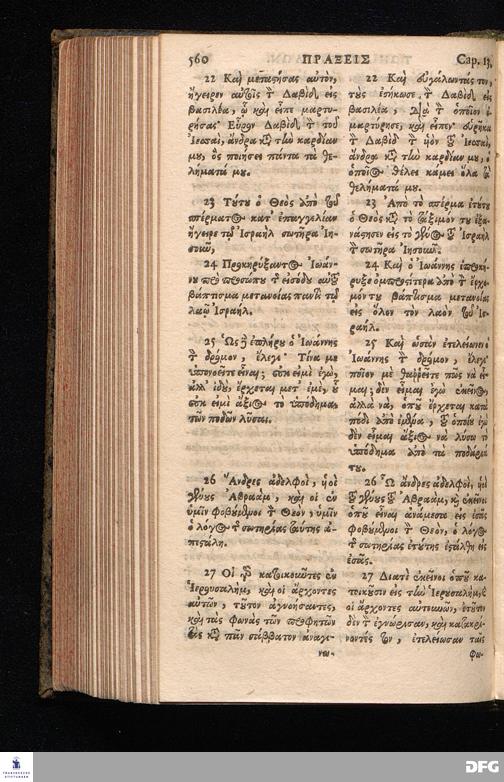 560 ΠΡΑΞΕΙΣ Cap. 13.
22 Καὶ μεταστήσας αὐτὸν,
ἤγειρεν αὐτοῖς τὸν Δαβὶδ εἰς
βασιλέα, ᾧ καὶ εἶπε μαρτυ-
ρήσας· Εὗρον Δαβὶδ τὸν τοῦ
Ἰεσσαὶ, ἄνδρα κατὰ τὴν καρδίαν
μου, ὃς ποιήσει πάντα τὰ θε-
λήματά μου.
23 Τούτου ὁ Θεὸς ἀπὸ τοῦ
σπέρματος κατ' ἐπαγγελίαν
ἤγειρε τῷ Ἰσραὴλ σωτῆρα Ἰη-
σοῦν,
24 Προκηρύξαντος Ἰωάν-
νου πρὸ προσώπου τῆς εἰσόδου αὐτοῦ
βάπτισμα μετανοίας παντὶ τῷ
λαῷ Ἰσραήλ.
25 Ὡς δὲ ἐπλήρου ὁ Ἰωάννης
τὸν δρόμον, ἔλεγε· Τίνα με
ὑπονοεῖτε εἶναι; οὐκ εἰμὶ ἐγὼ,
ἀλλ' ἰδοὺ, ἔρχεται μετ' ἐμὲ, οὗ
οὐκ εἰμὶ ἄξιος τὸ ὑπόδημα
τῶν ποδῶν λῦσαι.
26 Ἄνδρες ἀδελφοὶ, υἱοὶ
γένους Ἀβραὰμ, καὶ οἱ ἐν
ὑμῖν φοβούμενοι τὸν Θεὸν, ὑμῖν
ὁ λόγος τῆς σωτηρίας ταύτης ἀ-
πεστάλη.
27 Οἱ γὰρ κατοικοῦντες ἐν
Ἱερουσαλὴμ, καὶ οἱ ἄρχοντες
αὐτῶν, τοῦτον ἀγνοήσαντες,
καὶ τὰς φωνὰς τῶν προφητῶν
τὰς κατὰ πᾶν σάββατον ἀναγι-
νω-
22 Καὶ εὐγάλωντάς τον,
τοὺς ἐσήκωσε τὸν Δαβὶδ εἰς
βασιλέα, διὰ τὸν ὁποῖον
μαρτύρησε, καὶ εἶπεν· εὕρηκα
τὸν Δαβὶδ τὸν υἱὸν τοῦ Ἰεσσαὶ,
ἄνδρα κατὰ τὴν καρδίαν μου, ὁ
ὁποῖος θέλει κάμει ὅλα τὰ
θελήματά μου.
23 Ἀπὸ τὸ σπέρμα ἐτούτου
ὁ Θεὸς κατὰ τὸ τάξιμόν του ἐξα-
νάστησεν εἰς τὸ γένος τοῦ Ἰσραὴλ
τὸν σωτῆρα Ἰησοῦν.
24 Καὶ ὁ Ἰωάννης ἐπροκή-
ρυξε ὀμπροστήτερα ἀπὸ τὸν ἐρχο-
μόν του βάπτισμα μετανοίας
εἰς ὅλον τὸν λαὸν τοῦ Ἰσ-
ραήλ.
25 Καὶ ὡσὰν ἐτελείωνεν ὁ
Ἰωάννης τὸν δρόμον, ἔλεγε·
ποῖον μὲ θαῤῥεῖτε πῶς νὰ εἶ-
μαι; δὲν εἶμαι ἐγὼ ἐκεῖνος,
ἀλλὰ νὰ, ὁποῦ ἔρχεται κατὰ
πόδι ἀπὸ ἐμένα, τοῦ ὁποίου ἐγὼ
δὲν εἶμαι ἄξιος νὰ λύσω τὸ
ὑπόδημα ἀπὸ τὰ ποδάριά
του.
26 Ὦ ἄνδρες ἀδελφοὶ, υἱοὶ
τοῦ γένους τοῦ Ἀβραὰμ, καὶ ἐκεῖνοι
ὁποῦ εἶναι ἀνάμεσα εἰς ἐσᾶς
φοβούμενοι τὸν Θεὸν, ὁ λόγος
τῆς σωτηρίας ἐτούτης ἐστάλθη εἰς
ἐσᾶς.
27 Διατὶ ἐκεῖνοι ὁποῦ κα-
τοικοῦσιν εἰς τὴν Ἱερουσαλὴμ,
οἱ ἄρχοντες αὐτωνῶν, ἐτοῦτον
δὲν τὸν ἐγνώρισαν, καὶ κατακρί-
νοντές τον, ἐτελείωσαν ταῖς
φω-
FRANCKESCHE STIFTUNGEN
DFG